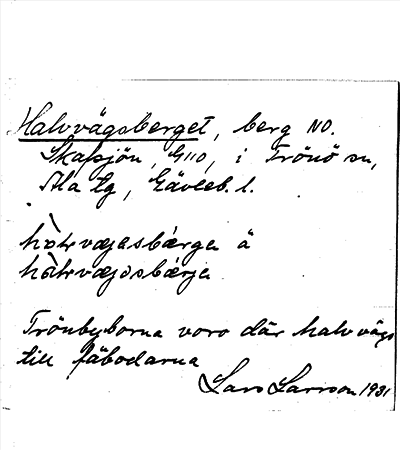 Halvvägsberget, berg NO.
Skafsjön, G110, i Trönö sn,
Ala tg, Gävleb. l.
hàlvvægasbærga ä
hàlvvægasbærja
Trönbyborna voro där halvvägs
till fäbodarna
Lars Larsson 1931